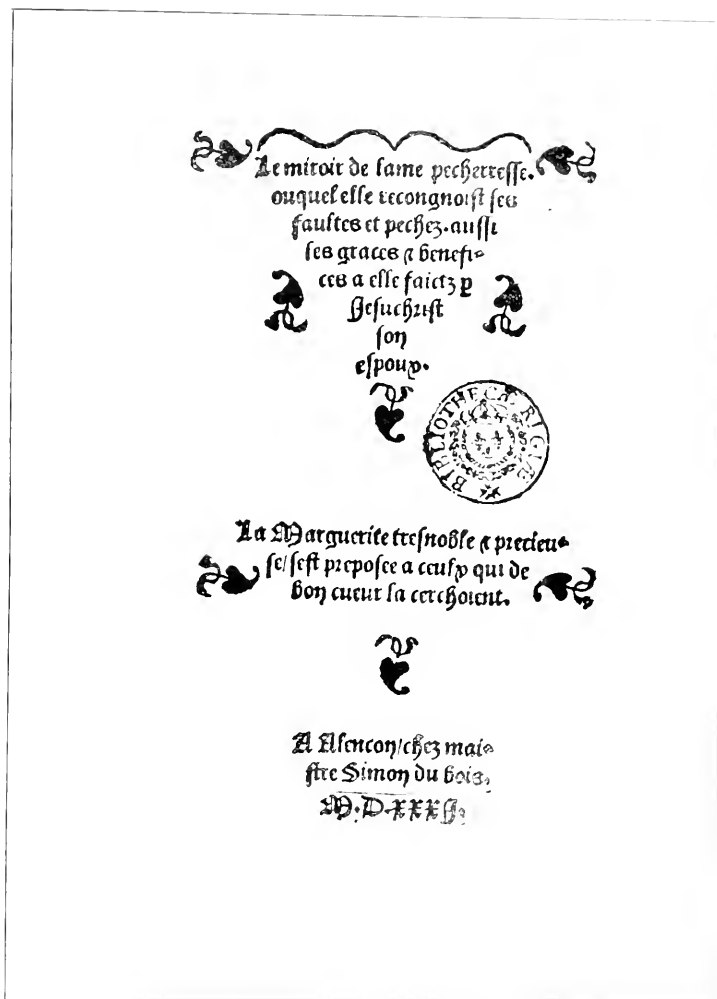 Le miroir de lame pecherresse.
ouquel elle recongnoist ses
faultes et pechez. aussi
ses graces ⁊ benefi⸗
ces a elle faictz ꝑ
Jesuchrist
son
espoux.
BIBLIOTHECÆ REGIÆ
La Marguerite tresnoble ⁊ precieu⸗
se/sest preposee a ceulx qui de
bon cueur la cerchoient.
A Alencon/chez mai⸗
stre Simon du bois.
M.D.xxxj.